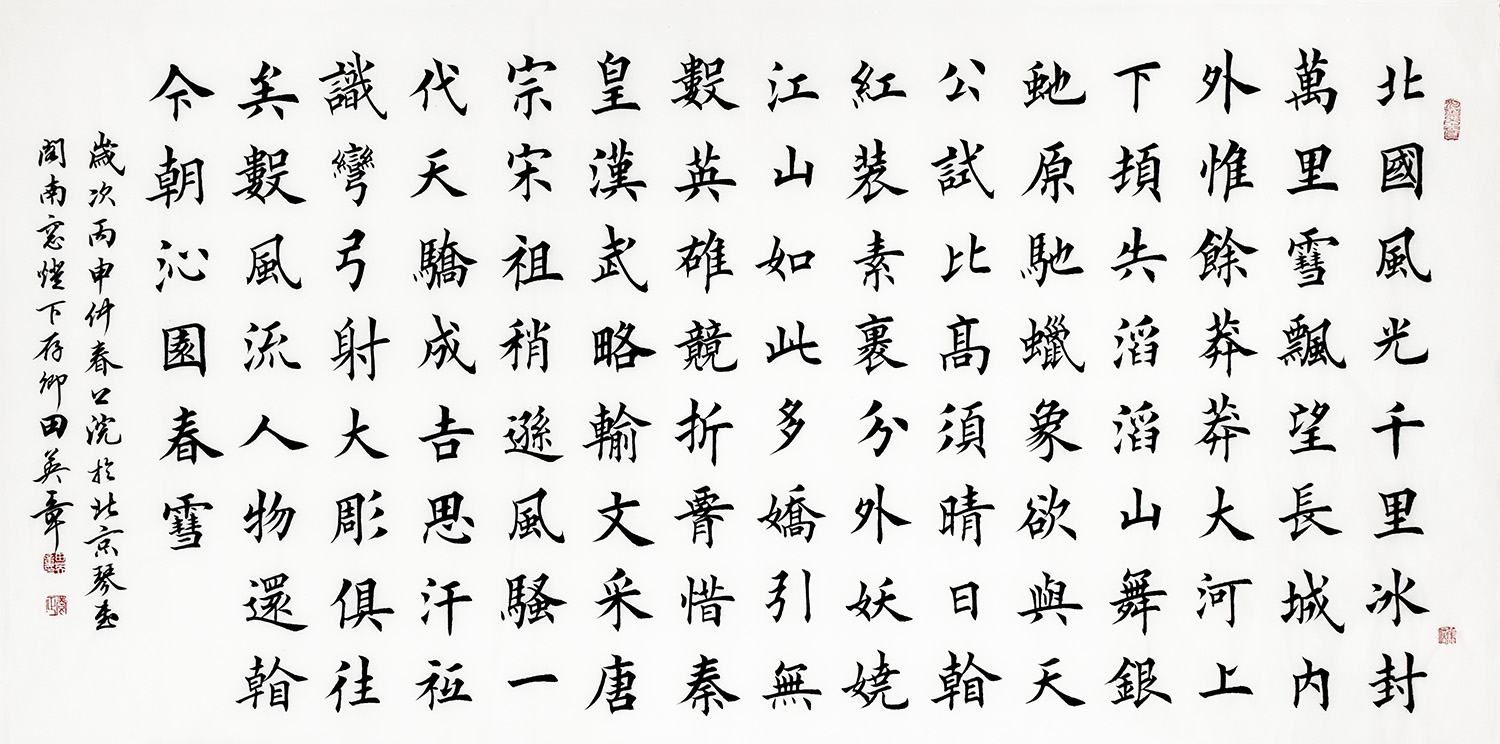 北國風光千里冰封
萬里雪飄望長城內
外惟餘莽莽大河上
下頓失滔滔山舞銀
虵原馳蠟象欲與天
公試比高須晴日看
紅装素裹分外妖嬈
江山如此多嬌引無
數英雄競折腰惜秦
皇漢武略輸文采唐
宗宋祖稍遜風騷一
代天驕成吉思汗祗
識彎弓射大彫俱往
矣數風流人物還看
今朝沁園春雪
歲次丙申仲春浣於北京琴
閣南窓燈下存卿田英章